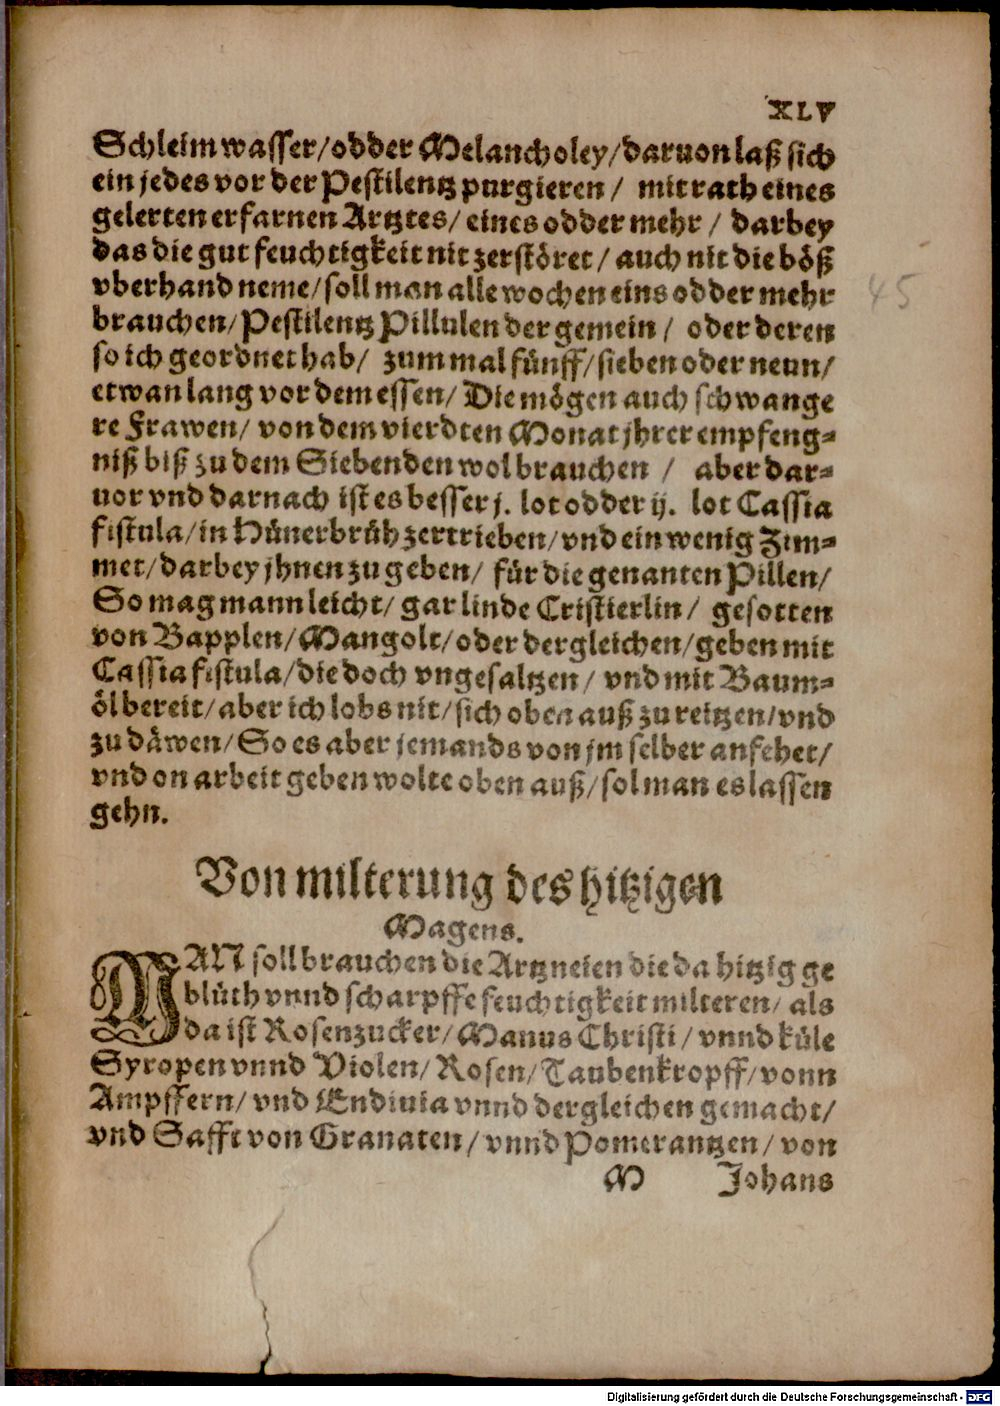 XLV
Schleimwasser/odder Melancholey/daruon laß sich
ein jedes vor der Pestilentz purgieren/ mit rath eines
gelerten erfarnen Artztes/ eines odder mehr/ darbey
das die gut feuchtigkeit nit zerstöret/ auch nit die böß
vberhand neme/soll man alle wochen eins odder mehr
brauchen/Pestilentz Pillulen der gemein/ oder deren
so ich geordnet hab/ zummal fünff/sieben oder neun/
etwan lang vor dem essen/ Die mögen auch schwange
re Frawen/ von dem vierdten Monat jhrer empfeng-
niß biß zu dem Siebenden wol brauchen / aber dar-
uor vnd darnach ist es besser j. lot odder ij. lot Cassia
fistula/in Hünerbrüh zertrieben/vnd ein wenig Zim-
met/darbey jhnen zu geben/ für die genanten Pillen/
So mag mann leicht/ gar linde Cristierlin/ gesotten
von Bapplen/Mangolt/oder dergleichen/geben mit
Cassia fistula/die doch vngesaltzen/ vnd mit Baum-
öl bereit/aber ich lobs nit/sich oben auß zu reitzen/vnd
zu däwen/So es aber jemands von jm selber anfehet/
vnd on arbeit geben wolte oben auß/sol man es lassen
gehn.
Von milterung des hitzigen
Magens.
MAN soll brauchen die Artzneien die da hitzig ge
blüth vnnd scharpffe feuchtigkeit milteren/ als
da ist Rosenzucker/Manus Christi/ vnnd küle
Syropen vnnd Violen/Rosen/Taubenkropff/vonn
Ampffern/ vnd Endiuia vnnd dergleichen gemacht/
vnd Safft von Granaten/vnnd Pomerantzen/von
M Johans
45
Digitalisierung gefördert durch die Deutsche Forschungsgemeinschaft - DFG